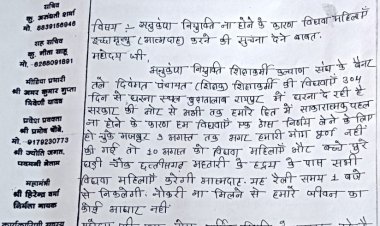 सचिव
कु. अश्वंती शर्मा
मो. 8839156946
सह सचिव
कु. गीता साहू
मो.- 6268091891
मीडिया प्रभारी
श्री अमर कुमार गुप्ता
त्रिवेणी यादव
प्रदेश प्रवक्ता
श्री प्रमोद चौबे,
मो. 9179230773
श्री ज्योति जगत,
पद्मयनी नेताम
महामंत्री
श्री हिरेन्द्र वर्मा
निर्मला नायक
कार्यकारिणी सदस्य
विषय :- अनुकम्पा नियुक्ति ना होने के कारण विधवा महिलाएँ
इच्छामृत्यु (आत्मदाह) करने की सूचना देने बाबत्।
महोदय जी,
अनुकम्पा नियुक्ति शिक्षाकर्मी कल्याण संघ के बैनर
तले दिवंगत पंचायत (शिक्षक) शिक्षाकर्मी की विधवाएँ 304
दिन से धरना स्थल बूढ़ातालाब रायपुर में धरना दे रही है
सरकार की ओर से अभी तक हमारे हित में सकारात्मक पहल
ना होने के कारण हम विधवाएँ निर्णय लेने के लिए
हो चुके मजबूर 9 अगस्त तक अगर हमारी मांगे पूर्ण नहीं
की गई तो 10 अगस्त को विधवा महिलाएँ और बच्चे
घड़ी चौक छत्तीसगढ़ महतारी के हृदय के पास सभी
विधवा महिलाएँ करेगी आत्मदाह। यह रैली समय 1 बजे
से निकलेगी। नौकरी ना मिलने से हमारे जीवन का
कोई आधार नहीं।